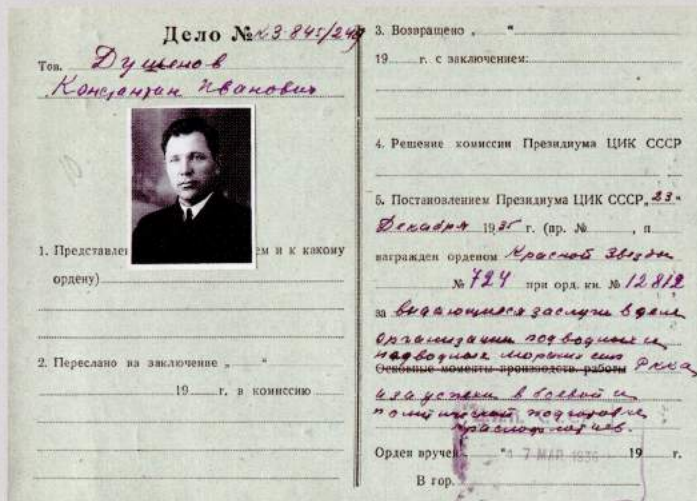 Дело № 3-845/249
Тов. Душенов
Константин Иванович
1. Представлен ем и к какому
ордену)
2. Переслано на заключение „ “
19 г. в комиссию
3. Возвращено „ “
19 г. с заключением:
4. Решение комиссии Президиума ЦИК СССР
5. Постановлением Президиума ЦИК СССР „23“
Декабря 1935 г. (пр. № , п
награжден орденом Красной Звезды
№ 724 при орд. кн. № 12812
за выдающиеся заслуги в деле
организации подводных и
надводных морских сил РККА
Основные моменты производств. работы
и за успехи в боевой и
политической подготовке
краснофлотцев.
Орден вручен „ “ 19 г.
7 МАЯ 1936
В гор.